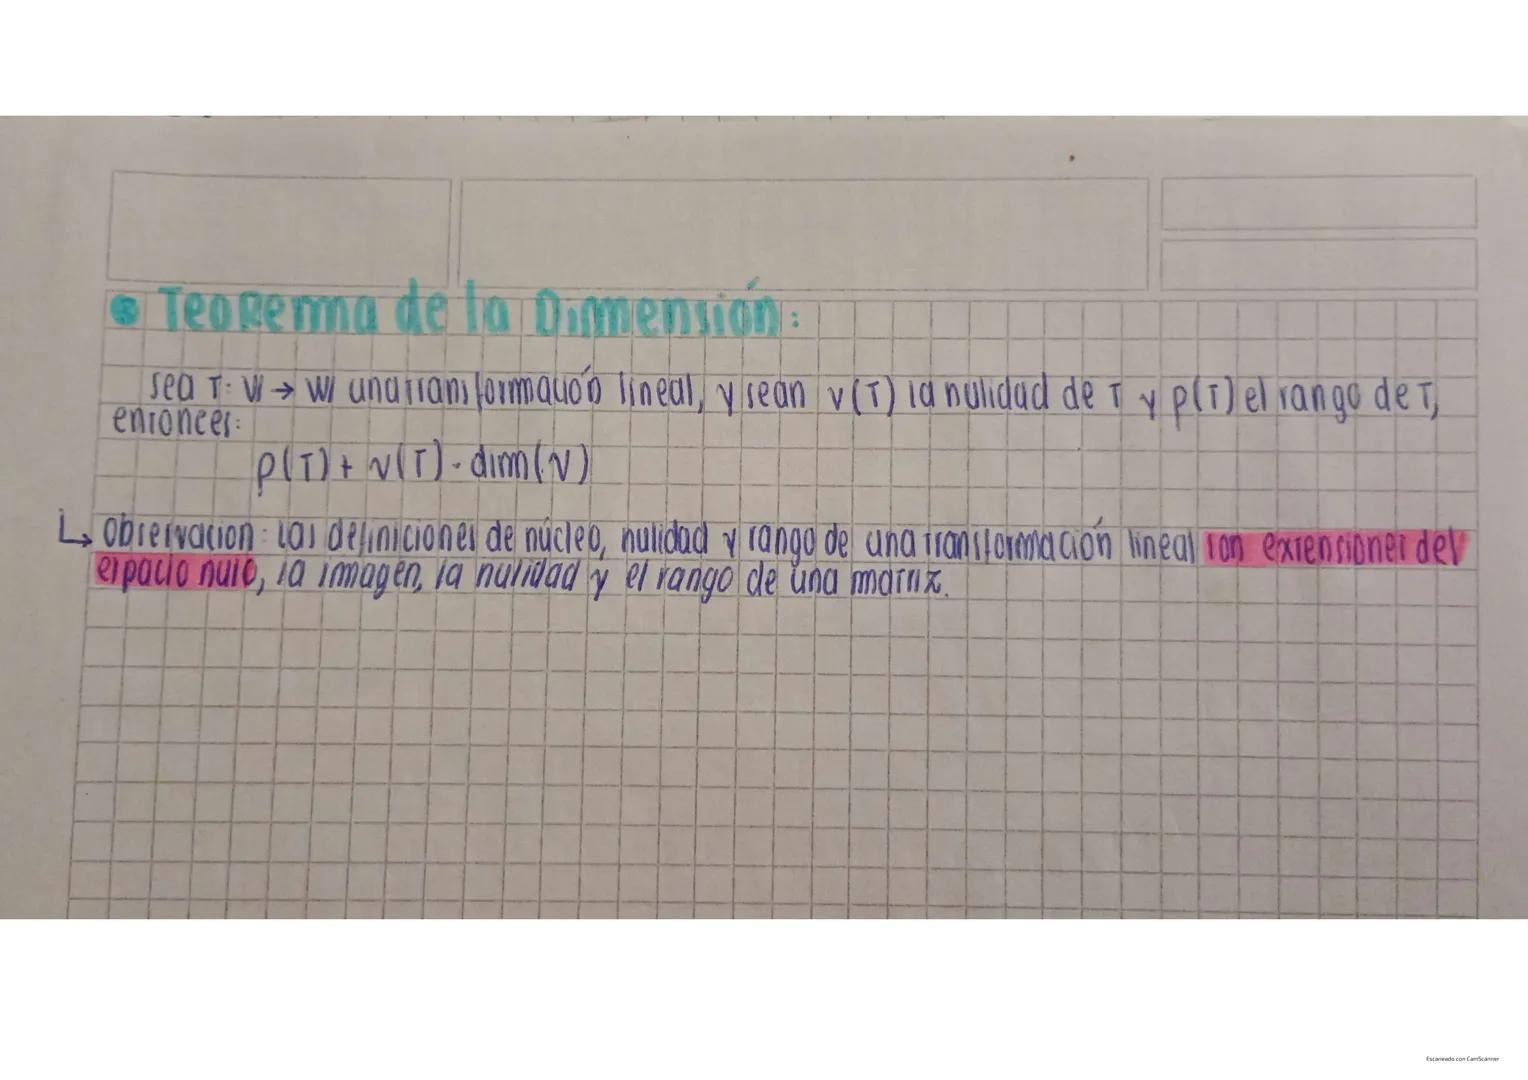 Teorema de la Dimensión:
sea T: V → W una transformación lineal, y sean ν(T) la nulidad de T y ρ(T) el rango de T,
entonces:
ρ(T) + ν(T) = dim(V)
↳ Observación: Las definiciones de núcleo, nulidad y rango de una transformación lineal son extensiones del
espacio nulo, la imagen, la nulidad y el rango de una matriz.
Escaneado con CamScanner